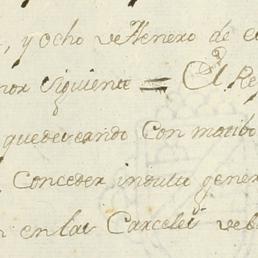 , y ocho de Henero de e
nor siguiente = El Re
quedeseando con motibo
Conceder indulto gener
en las Carceles de